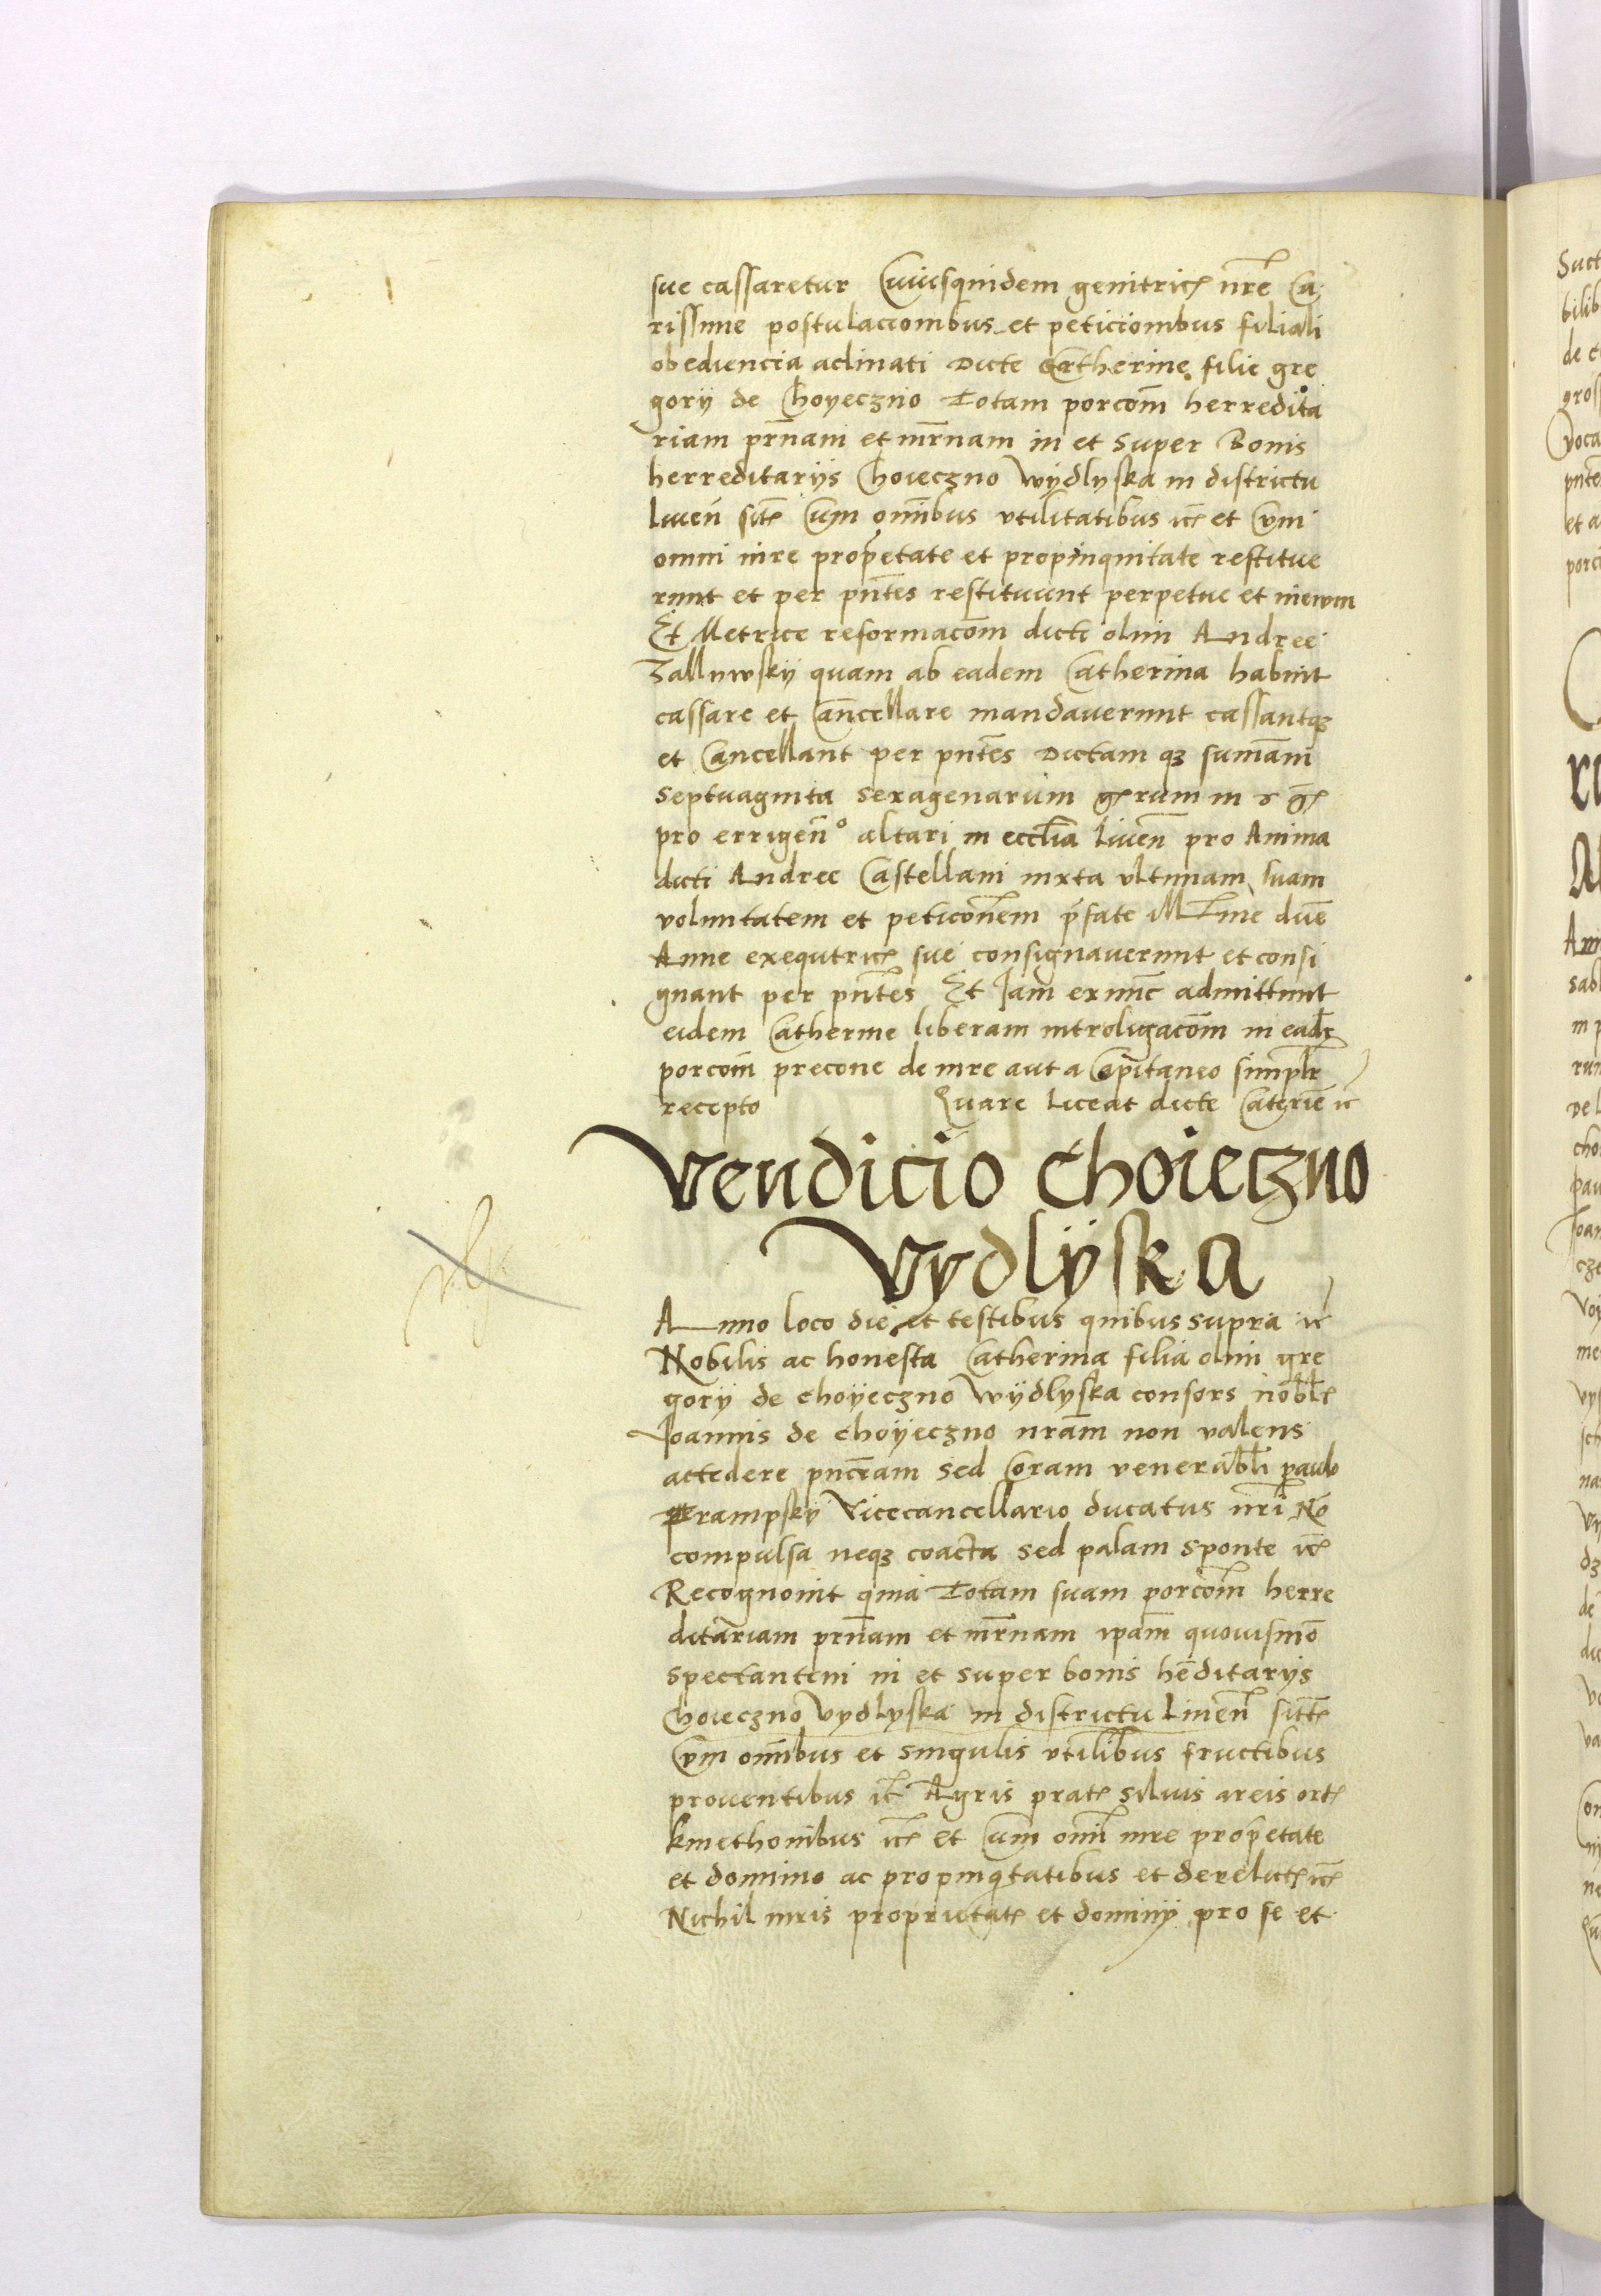 sue cassaretur Cuiusquidem genitricꝭ nr̃e Ca
rissime postulacionibus et peticionibus filiali
obediencia aclinati Dicte Catherine filie gre
gorÿ de Choyeczno Totam porcom̃ herredita
riam pr̃nam et mr̃nam in et super Bonis
herreditarÿs Choieczno Wÿdlyska in districtu
liuen̄ sitꝭ Cum om̃ibus vtilitatibus ⁊cꝭ et Cum
omni iure prop̃etate et propinquitate restitue
runt et per pn̄tes restituunt perpetue et in ewm
Et Metrice reformacom̃ dicti olim Andree
Zalluwskÿ quam ab eadem Catherina habuit
cassare et Can̄cellare mandauerunt cassantqꝫ
et Cancellant per pn̄tes Dictam qꝫ sum̄am
septuaginta sexagenarum gꝭ rum in r gꝭ
pro errigen̄° altari in eccl̃ia liuen̄ pro Anima
dicti Andree Castellani iuxta vltimam suam
voluntatem et peticõnem p̃fate Ill̃me dn̄e
Anne exequtricꝭ sue consignauerunt et consi
gnant per pn̄tes Et Jam exnunc admittunt
eidem Catherine liberam introligacom̃ in eadẽ
porcom̃ precone de iure aut a Capitaneo simpl̃r
recepto Quare liceat dicte Caterie ⁊c
Vendicio Choieczno
Vydlÿska
Anno loco die et testibus quibus supra ⁊c
Nobilis ac honesta Catherina filia olim gre
gorÿ de choÿeczno Wÿdlyska consors nobl̃ꝭ
Joannis de choÿeczno nr̃am non valens
accedere pn̄ciam sed Coram venerabl̃i paulo
prampskÿ Vicecancellario ducatus nr̃i No
compulsa neqꝫ coacta sed palam sponte ⁊cꝭ
Recognouit quia Totam suam porcom̃ herre
ditariam prñam et mr̃nam ipam̃ quouismõ
spectantem in et super bonis hẽditarÿs
Choieczno Vydlyska in districtu liuen̄ sitꝭ
Cum om̃ibus et singulis vtilibus fructibus
prouentibus ⁊c̃ Agris pratꝭ siluis areis ortꝭ
kmethonibus ⁊cꝭ et Cum om̃i iure prop̃etate
et dominio ac propinq̃tatibus et derelictꝭ ⁊cꝭ
Nichil iuris proprietatꝭ et dominÿ pro se et